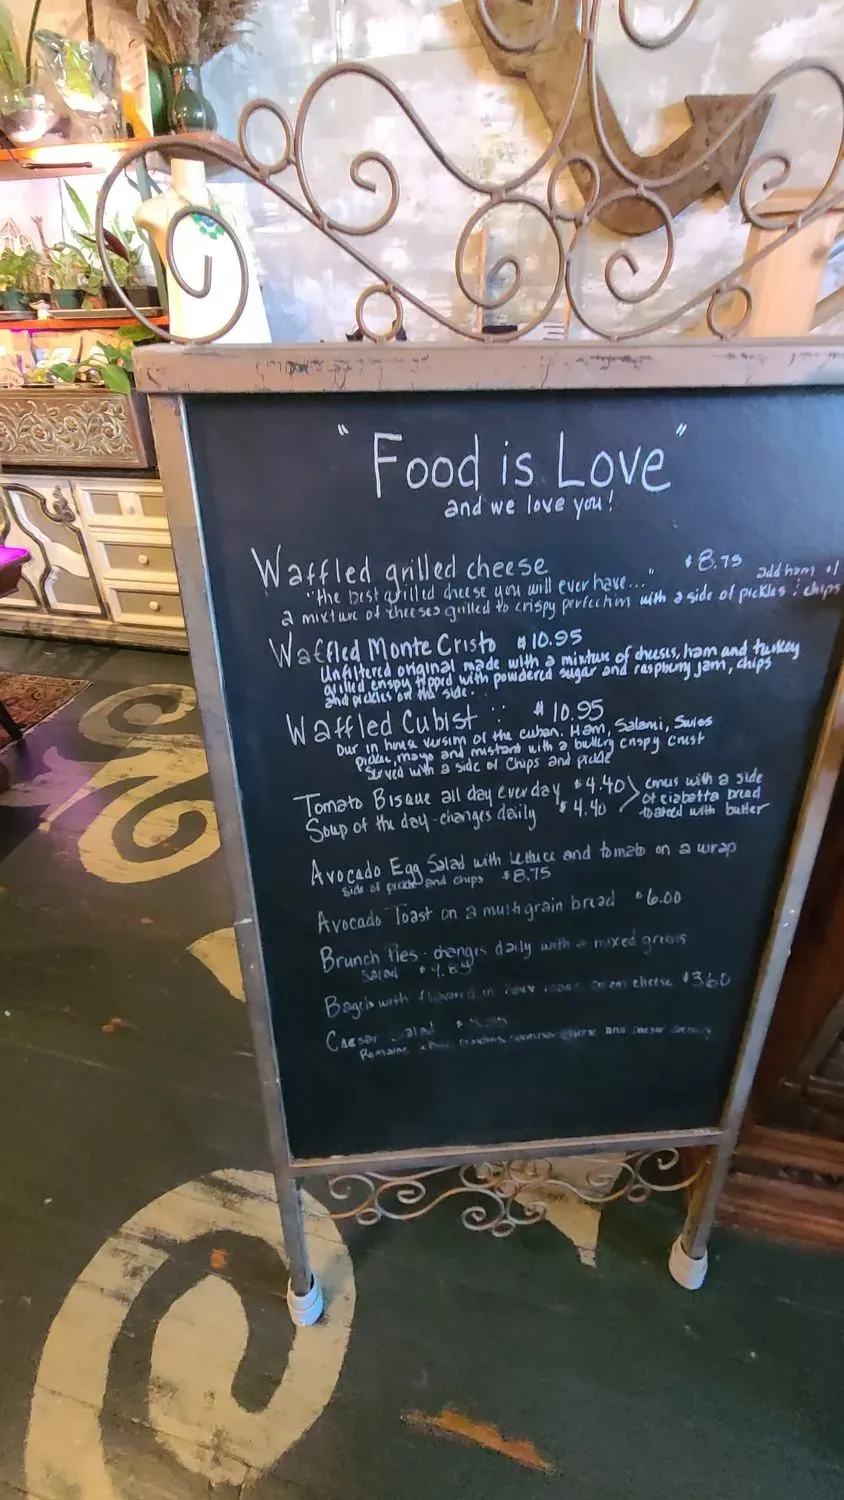 "Food is Love"
and we love you!
Waffled grilled cheese $8.75 add ham $1
"the best grilled cheese you will ever have..."
a mixture of cheeses grilled to crispy perfection with a side of pickles : chips
Waffled Monte Cristo $10.95
Unfiltered original made with a mixture of cheesis, ham and turkey
grilled crispy tipped with powdered sugar and raspberry jam, chips
and pickles on the side...
Waffled Cubist $10.95
Our in house version of the cuban. Ham, Salami, Swiss
pickle, mayo and mustard with a buttery crispy crust
Served with a side of Chips and pickle
Tomato Bisque all day everyday $4.40 comes with a side
Soup of the day - changes daily $4.40 of ciabatta bread
toasted with butter
Avocado Egg Salad with lettuce and tomato on a wrap
side of pickle and chips $8.75
Avocado Toast on a multigrain bread $6.00
Brunch Pies - changes daily with a mixed greens
Salad $4.85
Bagels with flavored in house made cream cheese $3.60
Caesar Salad
Romaine, and caesar